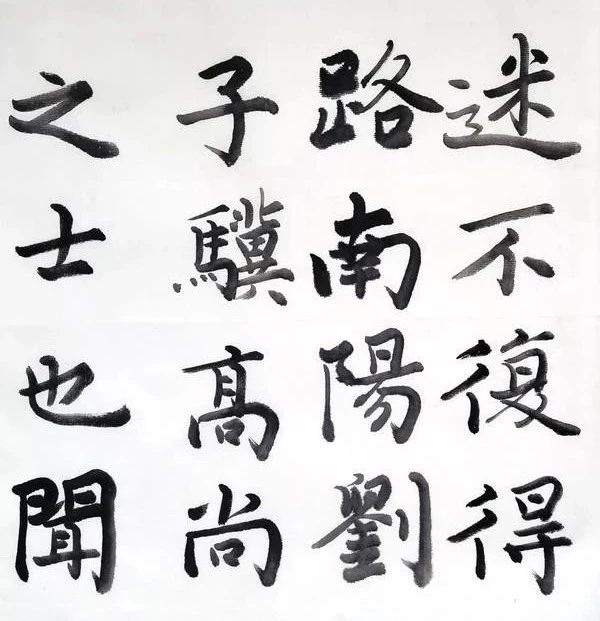 迷不復得
路南陽劉
子驥髙尚
之士也聞